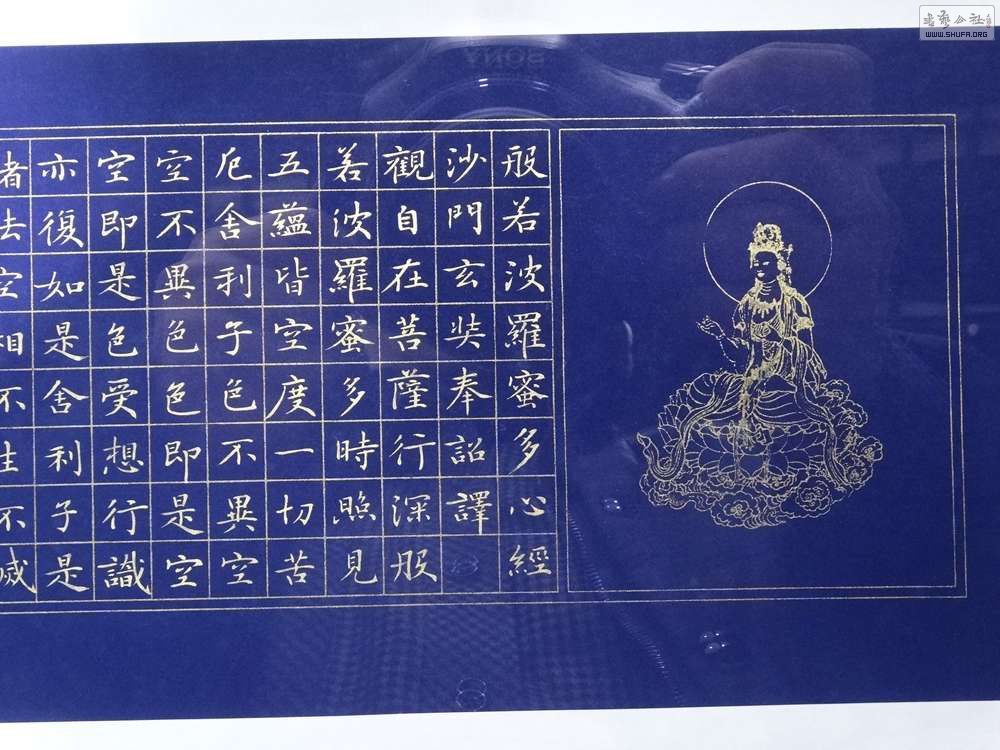 般若波羅蜜多心經
沙門玄奘奉詔譯
觀自在菩薩行深般
若波羅蜜多時照見
五蘊皆空度一切苦
厄舍利子色不異空
空不異色色即是空
空即是色受想行識
亦復如是舍利子是
諸法空相不生不滅
书艺公社
WWW.SHUFA.ORG